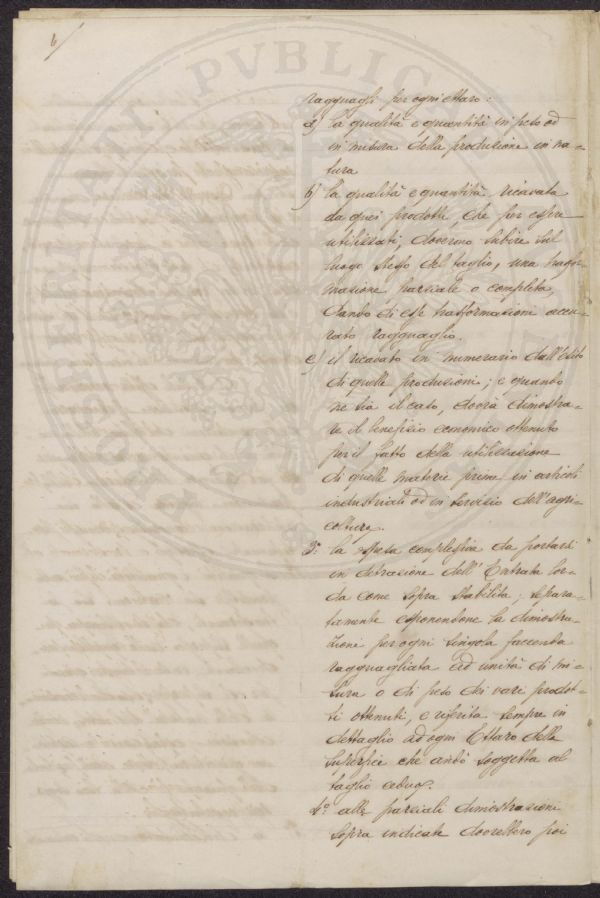 6
PROSPERITATI PVBLICAE
ragguagli per ogni ettaro:
a) la qualità e quantità in peso od
in misura della produzione in na-
tura
b) la qualità e quantità ricavata
da quei prodotti, che per essere
utilizzati, dovevano subire sul
luogo stesso del taglio, una trasfor-
mazione parziale o completa,
dando di esse trasformazioni accu-
rato ragguaglio.
c) il ricavato in numerario dall'esito
di quelle produzioni; e quando
ne sia il caso, dovrà dimostra-
re il beneficio economico ottenuto
per il fatto della utilizzazione
di quelle materie prime in articoli
industriali od in servizio dell'agri-
coltura.
3.º la spesa complessiva da portarsi
in detrazione dell'Entrata lor-
da come sopra stabilita; separa-
tamente esponendone la dimostra-
zioni per ogni singola faccenda
ragguagliata ad unità di mi-
sura o di peso dei vari prodot-
ti ottenuti, e riferita sempre in
dettaglio ad ogni Ettaro della
superfice che andò soggetta al
taglio ceduo.
4.º alle parziali dimostrazioni
sopra indicate dovrebbero poi